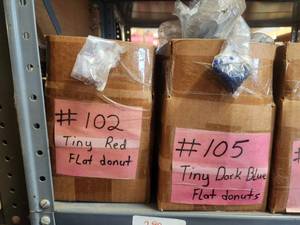 #102
Tiny Red
Flat donut
#105
Tiny Dark Blue
Flat donuts